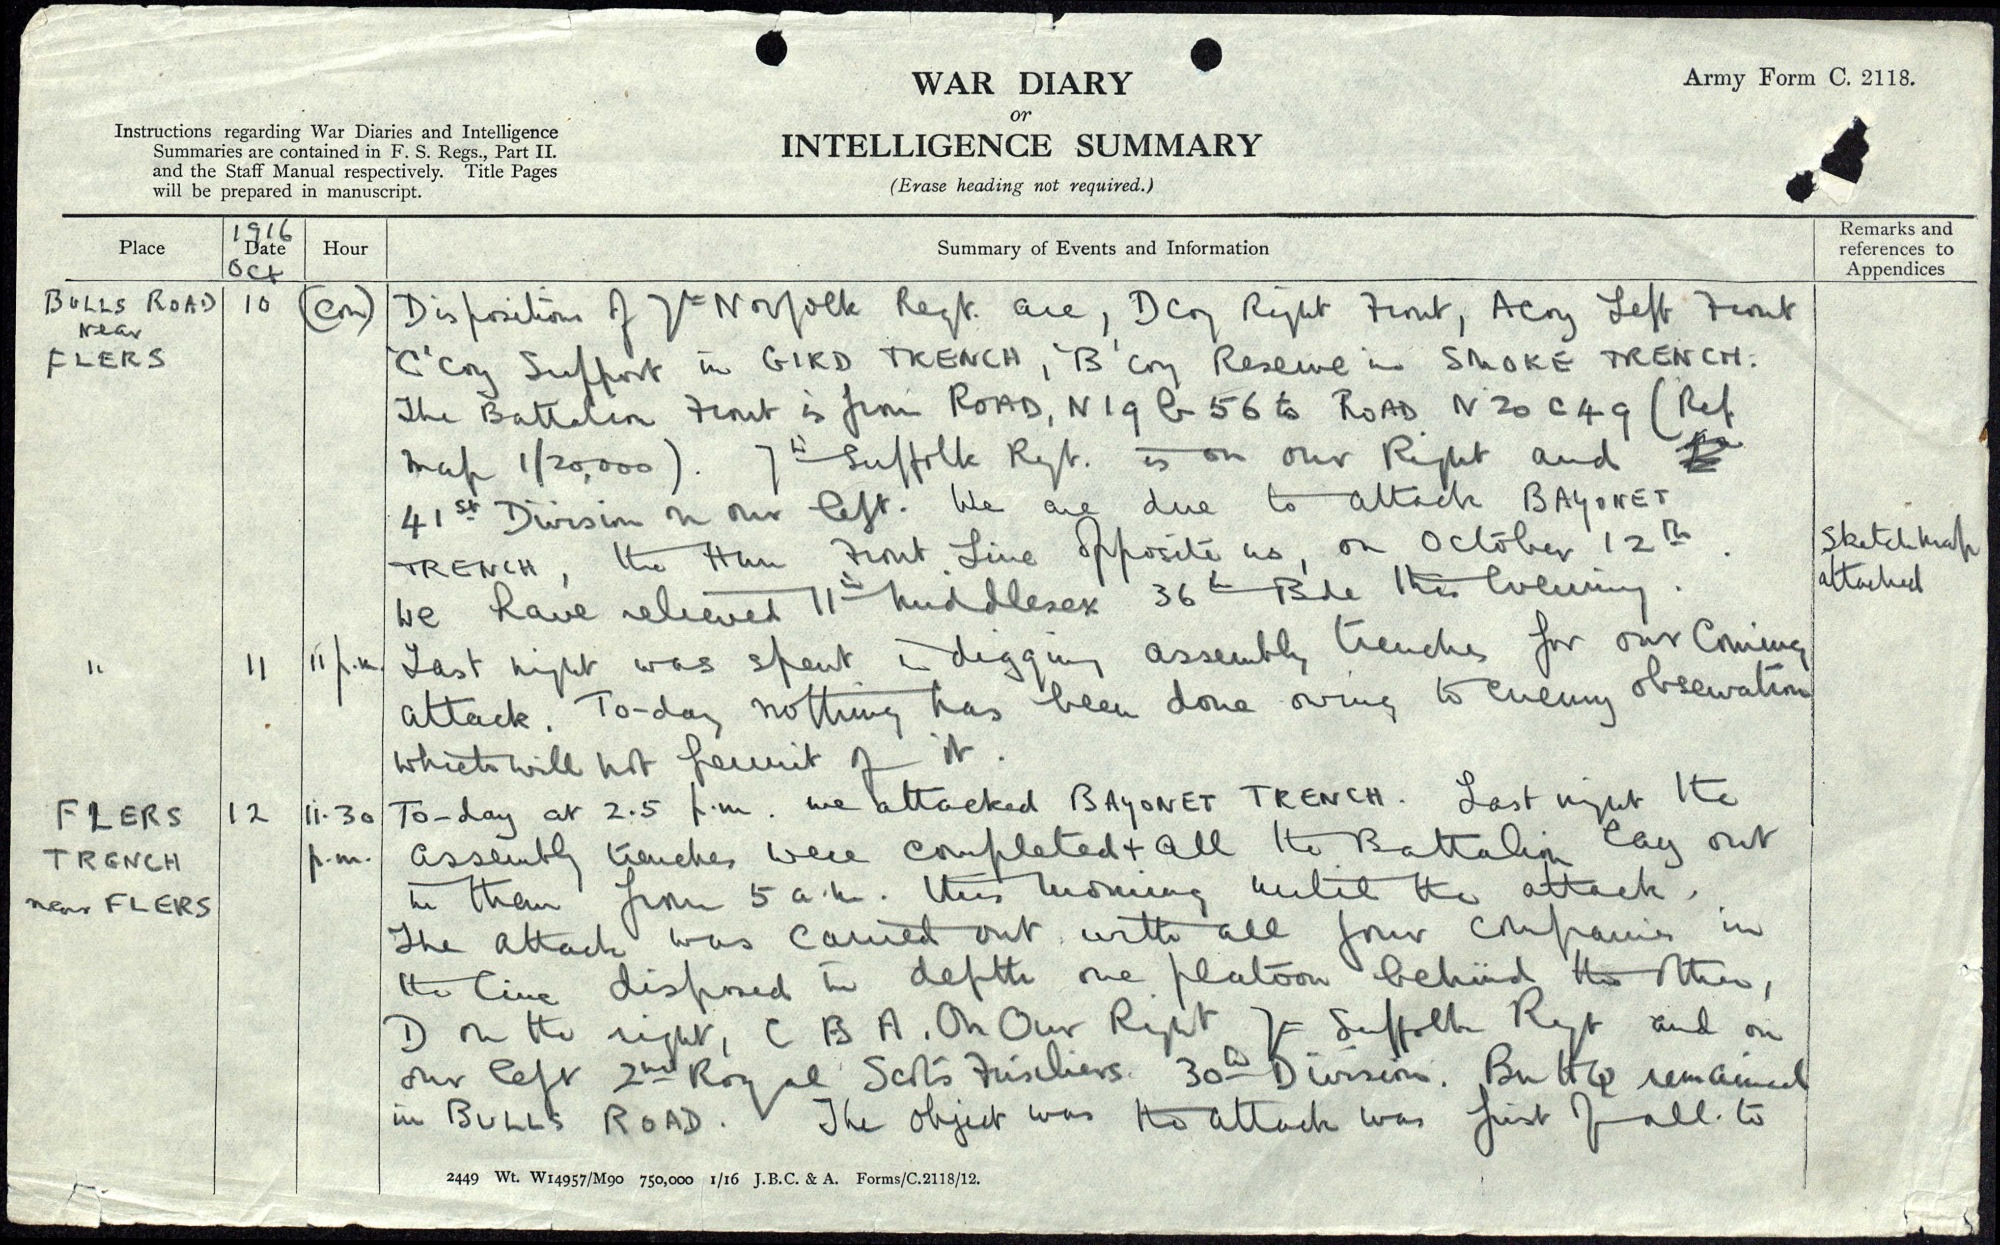 WAR DIARY
or
INTELLIGENCE SUMMARY
(Erase heading not required.)
Army Form C. 2118.
Instructions regarding War Diaries and Intelligence
Summaries are contained in F. S. Regs., Part II.
and the Staff Manual respectively. Title Pages
will be prepared in manuscript.
Place
1916
Date
Oct
Hour
Summary of Events and Information
Remarks and
references to
Appendices
BULLS ROAD 10 (Con) Dispositions of 7th Norfolk Regt. are, D Coy Right Front, A Coy Left Front
near
FLERS 'C' Coy Support in GIRD TRENCH, 'B' Coy Reserve in SMOKE TRENCH.
The Battalion Front is from ROAD, N 19 b 56 to ROAD N 20 C 4 9 (Ref
map 1/20,000). 7th Suffolk Regt. is on our Right and
41st Division on our left. We are due to attack BAYONET
TRENCH, the Hun Front Line opposite us, on October 12th.
Sketch map
attached
We have relieved 11th Middlesex 36th Bde this Evening.
" 11 11 p.m. Last night was spent in digging assembly trenches for our Coming
attack. To-day nothing has been done owing to Enemy observation
which will not permit of it.
FLERS 12 11.30 To-day at 2.5 p.m. we attacked BAYONET TRENCH. Last night the
TRENCH p.m. assembly trenches were completed + all the Battalion lay out
near FLERS in them from 5 a.m. this morning until the attack.
The attack was carried out with all four companies in
the line disposed in depth one platoon behind the other,
D on the right, C B A. On Our Right 7th Suffolk Regt and on
our left 2nd Royal Scots Fusiliers. 30th Division. Bn HQ remained
in BULLS ROAD. The object was the attack was first of all to
2449 Wt. W14957/M90 750,000 1/16 J.B.C. & A. Forms/C.2118/12.